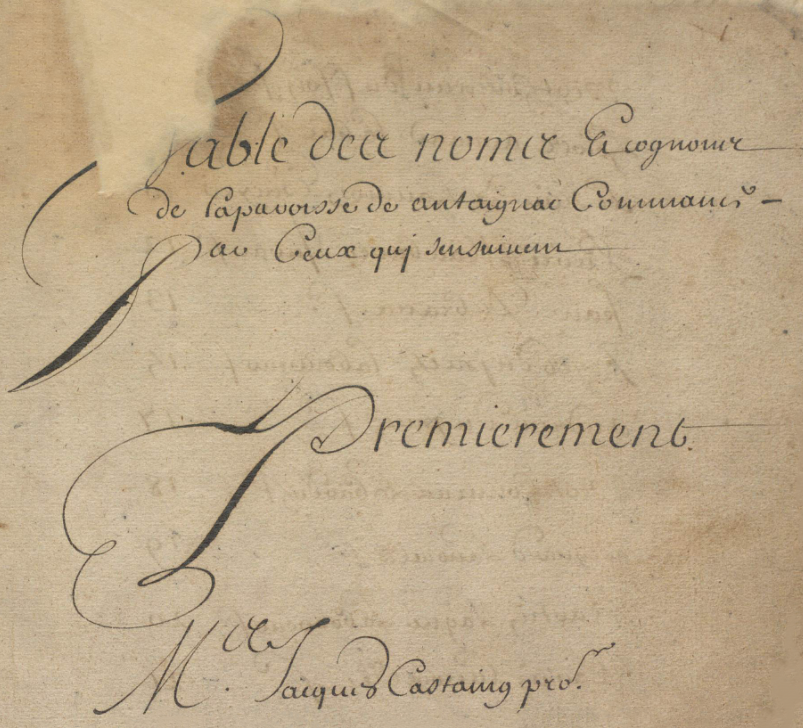 Table des noms Et cognoms
de laparoisse de antaignac Commansé
par Ceux qui sensuivent
Premierement.
Me. Jacques Castaing pror.